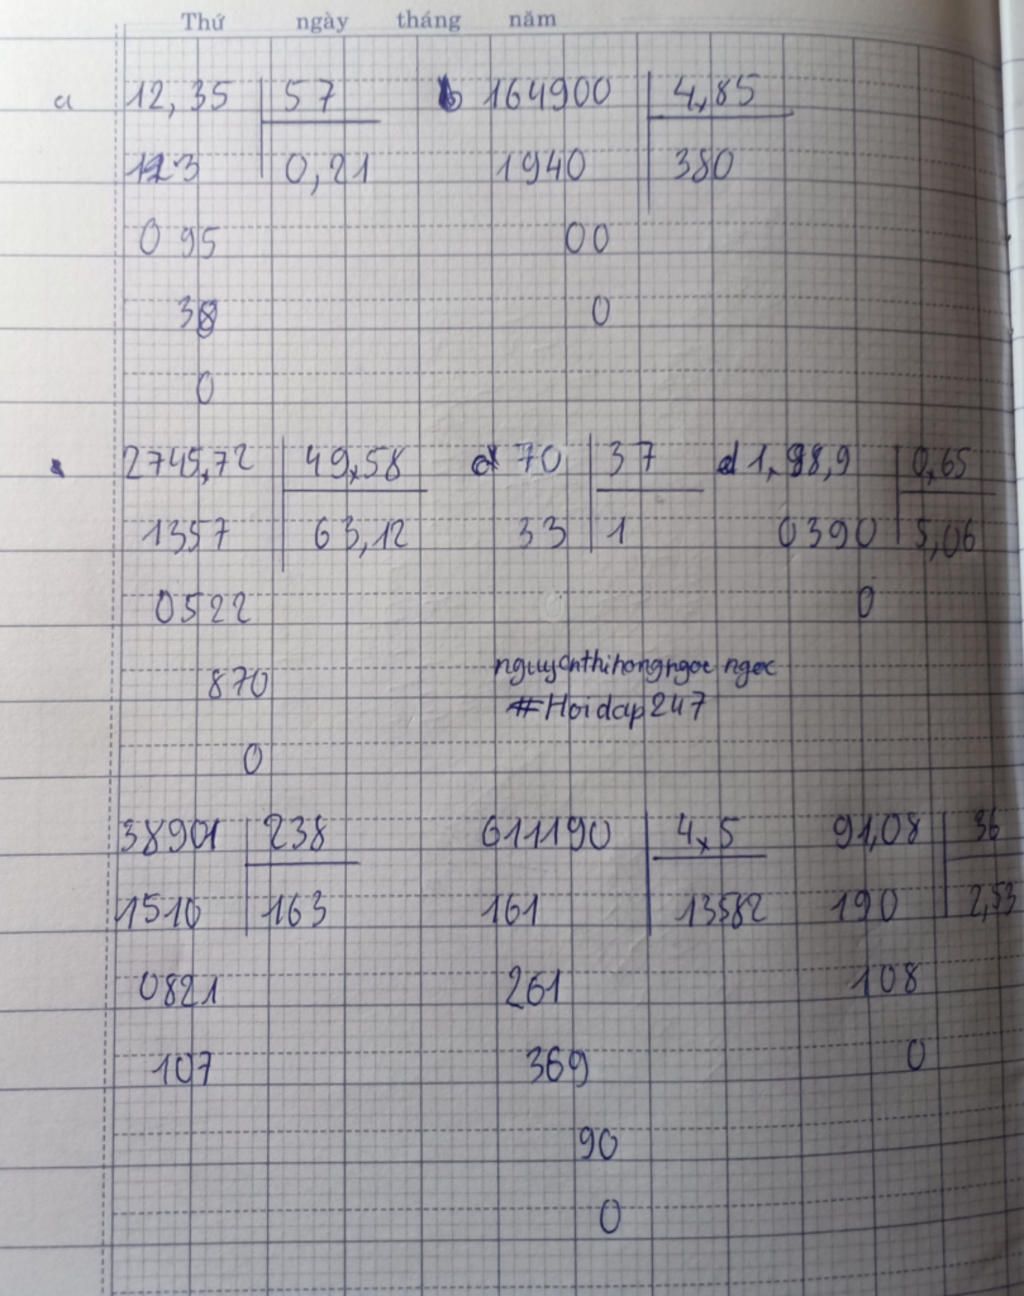 Thứ ngày tháng năm
a 12,35 57 b 164900 4,85
123 0,21 1940 380
0 95 00
38 0
0
2745,72 49,58 d 70 37 d 1,98,9 0,65
1357 63,12 33 1 0390 5,06
0522 0
870 nguyenthihongngoc ngoc
#Hoidap247
0
38901 238 611190 4,5 91,08 36
1510 163 161 13582 190 2,53
0821 261 108
107 369 0
90
0